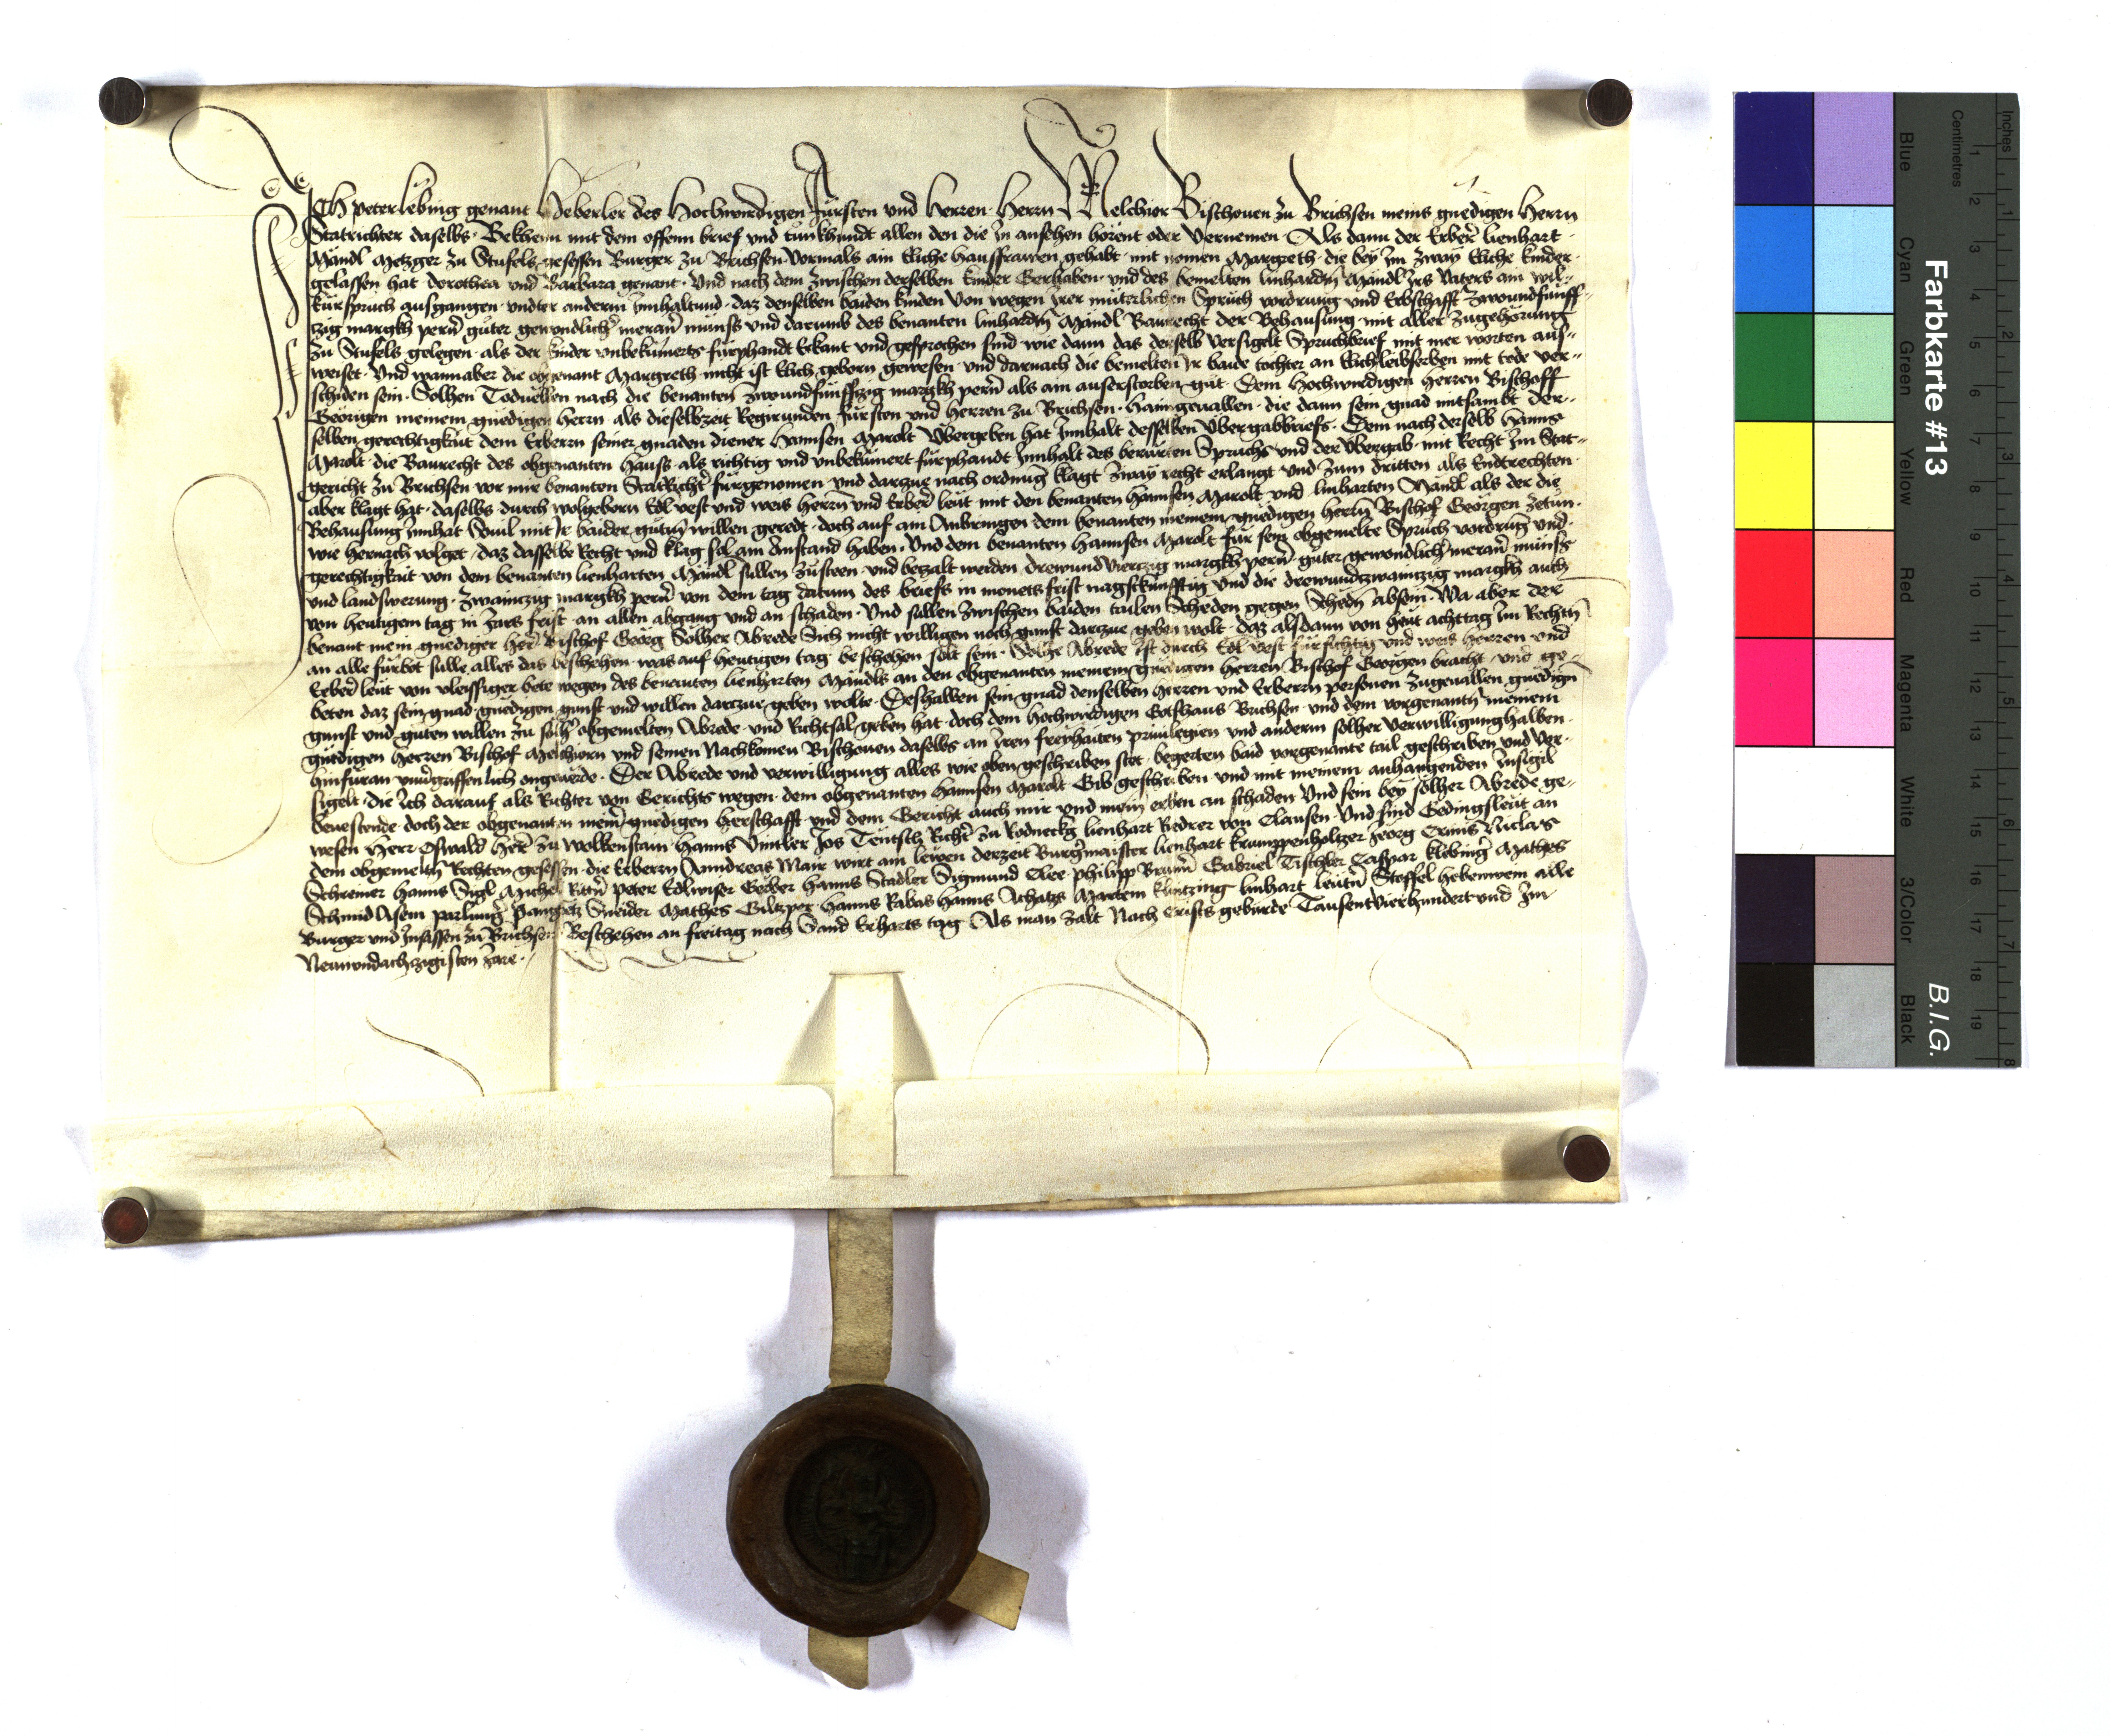 ICH peter lebing genant Heberler des Hochwirdigen Fürsten und Herren Herrn Melchior Bischouen zu Brichsen meins gnedigen Herrn
Statrichter daselbs Bekhenn mit dem offenn brief und tunkhundt allen den die in ansehen hörent oder Vernemen Als dann der Erber lienhart
Mändl Metzger zu Stufels gesessen Burger zu Brichsen Vormals ain Eliche haussfrawen gehabt mit nomen Margreth die bey im zway Eliche kinder
gelassen hat dorothea und Barbara genant Und nach dem zwischen derselben kinder Gerhaben und des bemelten linhardn Mändl irs Vaters ain wil-
kürspruch ausgangen undter anderm innhaltund daz denselben baiden kinden Von wegen irer müterlichen Spruch vordrung und Erbschafft zwoundfünff-
zig margkh pern guter gewondlicher meraner münss und darumb des benanten linhardn Mändl Baurecht der Behausung mit aller Zugehorung
zu Stufels gelegen als der kinder unbekümerts fürphandt Erkant und gesprochen sind wie dann das derselb Versigelt Spruchbrief mit mer worten aus-
weiset Und wann aber die obgenant Margreth nicht ist Elich geborn gewesen und darnach die bemelten Ir baide tochter an Elich leibserben mit tode ver-
schiden sein Solhen Todvellen nach die benanten zwoundfünffzig margkh pern als ain auserstorben gut Dem hochwirdigen herren Bischoff
Geörigen meinem gnedigen Herrn als dieselbzeit Regirunden fürsten und herren zu Brichsen haimgeuallen die dann sein gnad mitsambt der-
selben gerechtigkait dem Erberrn seiner gnaden diener Hannsen Marolt Übergeben hat Innhalt desselben Übergabbriefs Dem nach derselb Hanns
Marolt die Baurecht des obgenanten hauss als richtig und unbekümert fürphandt Innhalt des berürten Spruchs und der Übergab mit Recht im Stat-
gericht zu Brichsen vor mir benanten StatRichter fürgenomen und darzue nach ordnung klagt zway recht erlangt und zum dritten als Endtrechten
aber klagt hat daselbs durch wolgeborn Edl vest und weis Herrn und Erber leut mit den benanten Hannsen Marolt und linharten Mändl als der die
Behausung Innhat Souil mit Ir baider gutem willen geredt doch auf ain Anbringen dem benanten meinem gnedigen herrn Bischof Geörgen zetun
wie hernach volget daz dasselbe Recht und klag sol ain Anstand haben Und dem benanten Hannsen Marolt für sein obgemelte Spruch vordrung und
gerechtigkait von dem benanten lienharten Mändl sullen zusteen und betzalt werden drewundVierczig margkh perner guter gewondlicher meraner münss
und landswerung zwainczig margkh perner von dem tag datum des briefs in monets frist nagstkünfftig und die drewundzwainczig margkh auch
von heutigem tag in Jars frist an allen abgang und an schaden Und sullen zwischen baiden tailen Scheden gegen Schedn absein Wa aber der
benant mein gnediger herr Bischof Geörg Solher Abrede Sich nicht willigen noch gunst darzue geben wolt daz alsdann von heut achttag im Rechtn
an alle fürbot sulle alles das beschehen was auf heutigen tag beschehen solt sein Solhe Abrede ist durch Edl vest fürsichtig und weis Herren und
Erber leut von vleissiger bete wegen des benenten lienharten Mändls an den obgenanten meinem gnedigen herren Bischof Geörgen bracht und ge-
beten daz sein gnad gnedigen gunst und willen darzue geben wolte Deshalben sein gnad denselben Herren und Erberrn personen Zugeuallen gnedign
gunst und guten willen zu solher obgemelten Abrede und Richtsal geben hat doch dem hochwirdigen Gotshaus Brichsen und dem vorgenantn meinem
gnedigen herren Bischof Melchiorn und seinen Nachkomen Bischouen daselbs an Iren freyhaiten priuilegien und anderm solher verwilligung halben
hinfüran unuergriffenlich ongeuerde Der Abrede und verwilligung alles wie oben geschriben stet begerten baid vorgenante tail geschriben und Ver-
sigelt die Ich darauf als Richter von Gerichts wegen dem obgenanten Hannsen Marolt Gib geschriben und mit meinem anhangenden Insigil
beuestende doch der obgenanten meiner gnedigen Herschafft und dem Gericht auch mir und mein erben an schaden Und sein bey solher Abrede ge-
wesen Herr Oswald Herr zu Wolkenstain Hanns Vintler Jos Teutsch Richter zu Rodneckg lienhart Redrer von Clausen Und sind Gedingsleut an
dem obgemeltn Rechten gesessen die Erberrn Anndreas Mair wirt am lewen derzeit Burgermaister lienhart krumppenholtzer Jeorg Niclas
Schreiner Hanns Sigl Michel Peter Edlwiser Gerber Hanns Stadler Sigmund Clee philipp Gabriel Tischler Caspar klebinger Mathes
Schmid Asem parlunger Pangretz Sneider Mathes Hanns Rabas Hanns Achatzs Martein linhart leutn Steffel hebenwein alle
Burger und Insassen zu Brichsen Beschehen an freitag nach Sand Erharts tag Als man zalt Nach Crists geburde Tausentvierhundert und Im
Newnundachzigisten Jare
Farbkarte #13
B.I.G.
Blue
Cyan
Green
Yellow
Red
Magenta
White
3/Color
Black
Centimetres
Inches
1 2 3 4 5 6 7 8 9 10 11 12 13 14 15 16 17 18 19
1 2 3 4 5 6 7 8